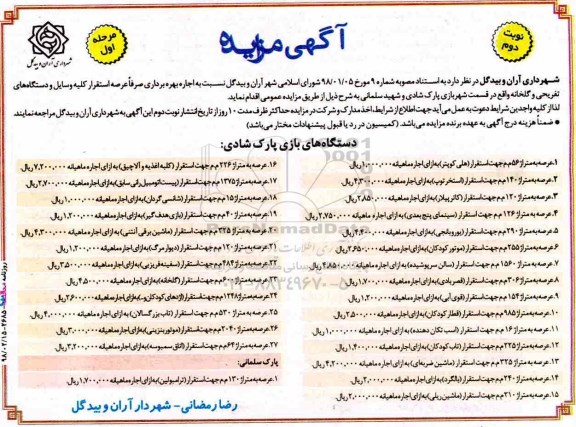 آگهی مزایده
نوبت دوم
مرحله اول
شهرداری آران و بیدگل
شهرداری آران و بیدگل در نظر دارد به استناد مصوبه شماره ۹ مورخ ۹۸/۰۱/۰۵ شورای اسلامی شهر آران و بیدگل نسبت به اجاره بهره برداری صرفاً عرصه استقرار کلیه وسایل و دستگاههای
تفریحی و گلخانه واقع در قسمت شهربازی پارک شادی و شهید سلمانی به شرح ذیل از طریق مزایده عمومی اقدام نماید.
لذا از کلیه واجدین شرایط دعوت به عمل می آید جهت اطلاع از شرایط، اخذ مدارک و شرکت در مزایده حداکثر ظرف مدت ۱۰ روز از تاریخ انتشار نوبت دوم این آگهی به شهرداری آران و بیدگل مراجعه نمایند
ضمناً هزینه درج آگهی به عهده برنده مزایده می باشد. (کمیسیون در رد یا قبول پیشنهادات مختار می باشد)
دستگاه‌های بازی پارک شادی:
۱. عرصه به متراژ ۵۶ م م جهت استقرار (هلی کوپتر) به ازای اجاره ماهیانه ۱,۰۰۰,۰۰۰ ریال.
۲. عرصه به متراژ ۱۴۰ م م جهت استقرار (استخر توپ) به ازای اجاره ماهیانه ریال.
۳. عرصه به متراژ ۱۲۰ م م جهت استقرار (کاتر پیلار) به ازای اجاره ماهیانه ۲,۸۵۰,۰۰۰ ریال.
۴. عرصه به متراژ ۱۲۶ م م جهت استقرار (سینمای پنج بعدی) به ازای اجاره ماهیانه ۲,۷۵۰,۰۰۰ ریال.
۵. عرصه به متراژ ۲۹۰ م م جهت استقرار به ازای اجاره ماهیانه ریال.
۶. عرصه به متراژ ۲۵۵ م م جهت استقرار (موتور کودکان) به ازای اجاره ماهیانه ۲,۶۵۰,۰۰۰ ریال.
۷. عرصه به متراژ ۱۵۶۰ م م جهت استقرار (سالن سرپوشیده) به ازای اجاره ماهیانه ریال.
۸. عرصه به متراژ ۳۰۶ م م جهت استقرار (قصر بادی) به ازای اجاره ماهیانه ۱,۷۰۰,۰۰۰ ریال.
۹. عرصه به متراژ ۱۵۴ م م جهت استقرار (قوی آبی) به ازای اجاره ماهیانه ۱,۲۰۰,۰۰۰ ریال.
۱۰. عرصه به متراژ ۹۸۵ م م جهت استقرار (قطار کودکان) به ازای اجاره ماهیانه ۲,۵۰۰,۰۰۰ ریال.
۱۱. عرصه به متراژ ۱۶ م م جهت استقرار (اسب تکان دهنده) به ازای اجاره ماهیانه ۱,۰۰۰,۰۰۰ ریال
۱۲. عرصه به متراژ ۳۲۵ م م جهت استقرار (تاب کودکان) به ازای اجاره ماهیانه ۱,۴۰۰,۰۰۰ ریال
۱۳. عرصه به متراژ ۳۲۵ م م جهت استقرار (ماشین ضربه‌ای) به ازای اجاره ماهیانه ۴,۲۰۰,۰۰۰ ریال.
۱۴. عرصه به متراژ ۲۴۰ م م جهت استقرار (بالگرد) به ازای اجاره ماهیانه ۲,۰۰۰,۰۰۰ ریال
۱۵. عرصه به متراژ ۲۱۰ م م جهت استقرار (ماشین ریلی) به ازای اجاره ماهیانه ۲,۰۰۰,۰۰۰ ریال
۱۶. عرصه به متراژ ۲۲۶ م م جهت استقرار (کلبه اغذیه و آلاچیق) به ازای اجاره ماهیانه ۷,۲۰۰,۰۰۰ ریال.
۱۷. عرصه به متراژ ۱۳۷۵ م م جهت استقرار (پیست اتومبیل رانی سابق) به ازای اجاره ماهیانه ۲,۷۰۰,۰۰۰ ریال
۱۸. عرصه به متراژ ۱۵ م م جهت استقرار (شانسی گردان) به ازای اجاره ماهیانه ۱,۰۰۰,۰۰۰ ریال
۱۹. عرصه به متراژ ۴۰ م م جهت استقرار (بازی هدف گیر) به ازای اجاره ماهیانه ۱,۲۰۰,۰۰۰ ریال.
۲۰. عرصه به متراژ ۲۲۵ م م جهت استقرار (ماشین برقی آنتنی) به ازای اجاره ماهیانه ۴,۳۰۰,۰۰۰ ریال.
۲۱. عرصه به متراژ ۱۲۰ م م جهت استقرار (دیوار مرگ) به ازای اجاره ماهیانه ریال
۲۲. عرصه به متراژ ۴۸۴ م م جهت استقرار (سفینه فریزبی) به ازای اجاره ماهیانه ۳,۵۰۰,۰۰۰ ریال
۲۳. عرصه به متراژ م م جهت استقرار (گلخانه) به ازای اجاره ماهیانه ۴,۵۰۰,۰۰۰ ریال
۲۴. عرصه به متراژ ۱۲۴۸ م م جهت استقرار (اژدهای کودکان) به ازای اجاره ماهیانه ۲,۶۰۰,۰۰۰ ریال
۲۵. عرصه به متراژ ۵۳۰ م م جهت استقرار (تاب بزرگسالان) به ازای اجاره ماهیانه ۴,۰۰۰,۰۰۰ ریال.
۲۶. عرصه به متراژ ۲۰۴۰ م م جهت استقرار (موتور بنزینی) به ازای اجاره ماهیانه ۲,۰۰۰,۰۰۰ ریال
۲۷. عرصه به متراژ ۶۴ م م جهت استقرار (اتاق سمبوسه) به ازای اجاره ماهیانه ۳,۲۰۰,۰۰۰ ریال.
پارک سلمانی:
۱. عرصه به متراژ ۱۳۰ م م جهت استقرار (ترامپولین) به ازای اجاره ماهیانه ۱,۷۰۰,۰۰۰ ریال.
رضا رمضانی - شهردار آران و بیدگل